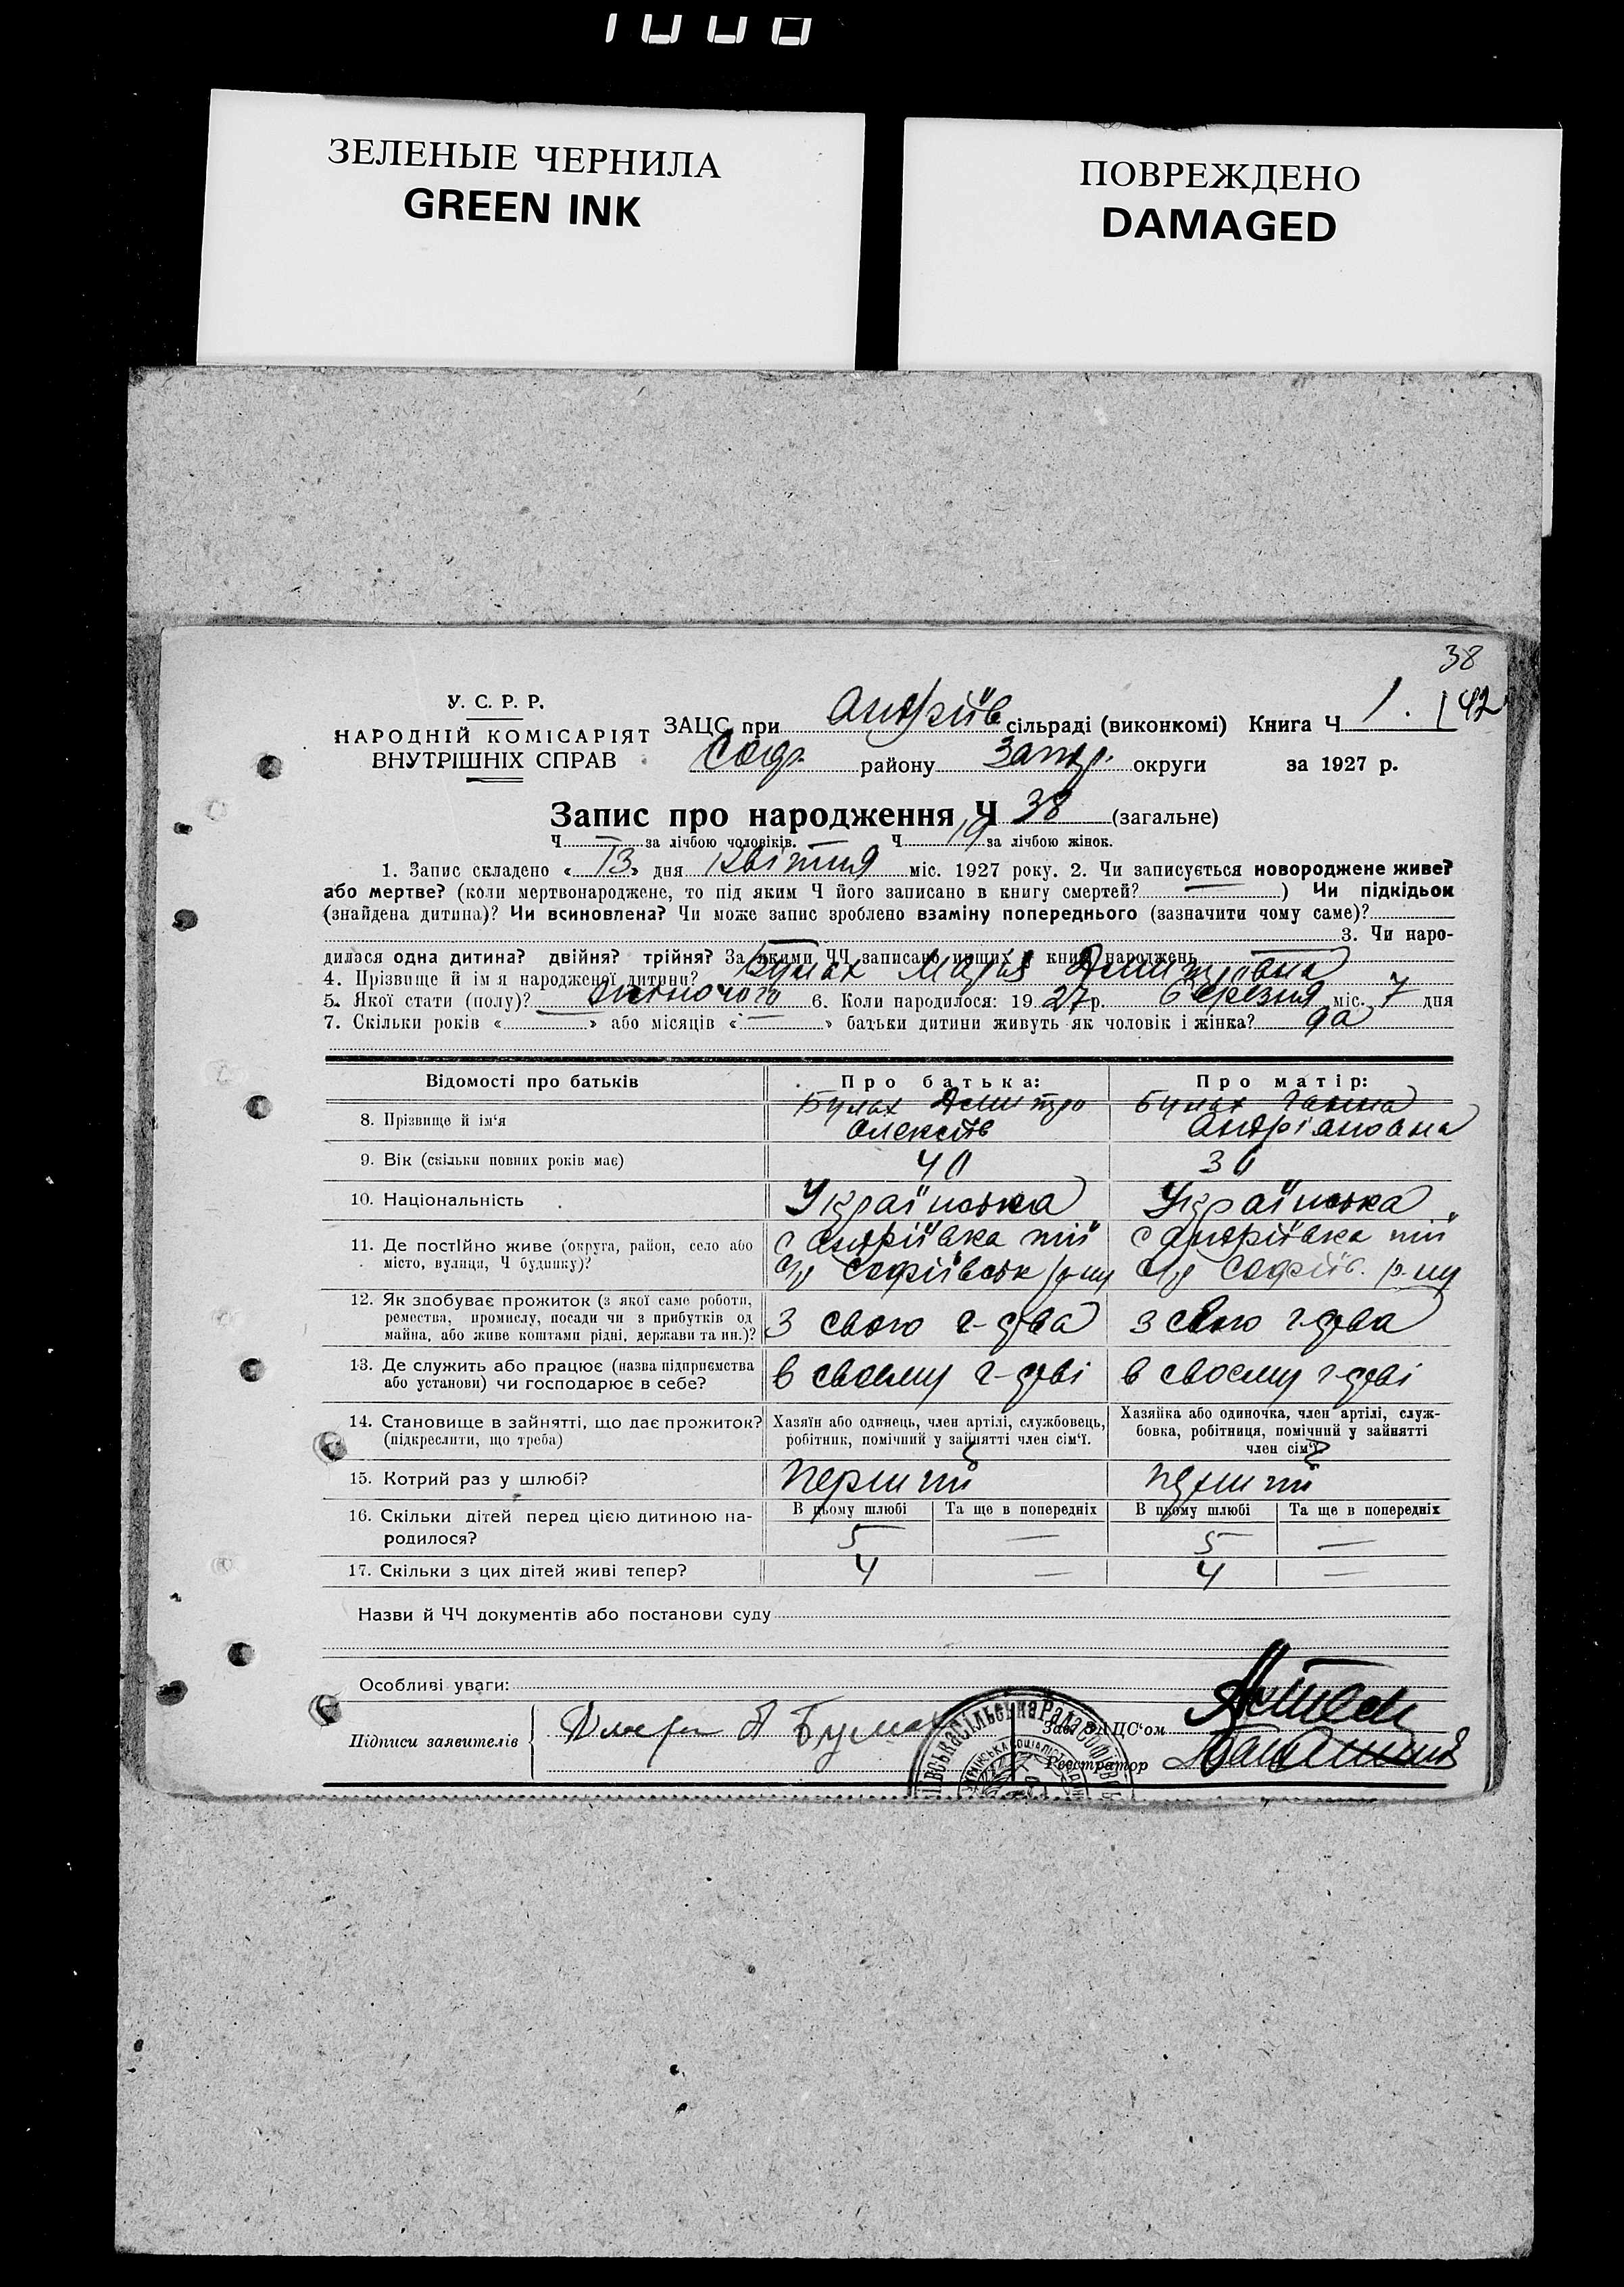 ЗЕЛЕНЫЕ ЧЕРНИЛА
GREEN INK
ПОВРЕЖДЕНО
DAMAGED
38
У. С. Р. Р.
НАРОДНІЙ КОМІСАРІЯТ
ВНУТРІШНІХ СПРАВ
ЗАЦС при Андріїв сільраді (виконкомі) Книга Ч 1. 42
Соф. району Запор. округи за 1927 р.
Запис про народження Ч 38 (загальне)
Ч — за лічбою чоловіків. Ч 19 за лічбою жінок.
1. Запис складено « 13 » дня Квітня міс. 1927 року. 2. Чи записується новороджене живе?
або мертве? (коли мертвонароджене, то під яким Ч його записано в книгу смертей? — ) Чи підкідьок
(знайдена дитина)? Чи всиновлена? Чи може запис зроблено взаміну попереднього (зазначити чому саме)?
3. Чи наро-
дилася одна дитина? двійня? трійня? За якими ЧЧ записано инших в книзі народжень
4. Прізвище й ім я народженої дитини? Булах Марія Дмитріївна
5. Якої статі (полу)? жіночого 6. Коли народилося: 19 27 р. березня міс. 7 дня
7. Скільки років « — » або місяців « — » батьки дитини живуть як чоловік і жінка? да
Відомості про батьків
Про батька:
Про матір:
8. Прізвище й ім'я
Булах Дмитро
Олексіїв
Булах Ганна
Андріановна
9. Вік (скільки повних років має)
40
30
10. Національність
Українська
Українська
11. Де постійно живе (округа, район, село або
місто, вулиця, Ч будинку)?
с Андріївка
Софіївськ р-ну
с Андріївка
Софіїв. р-ну
12. Як здобуває прожиток (з якої саме роботи,
ремества, промислу, посади чи з прибутків од
майна, або живе коштами рідні, держави та ин.)?
З свого г-дтва
З свого г-дтва
13. Де служить або працює (назва підприємства
або установи) чи господарює в себе?
в своему г-дтві
в своему г-дтві
14. Становище в зайнятті, що дає прожиток?
(підкреслити, що треба)
Хазяїн або одинець, член артілі, службовець,
робітник, помічний у зайнятті член сім'ї.
Хазяйка або одиночка, член артілі, служ-
бовка, робітниця, помічний у зайнятті
член сім'ї.
15. Котрий раз у шлюбі?
перший
перший
16. Скільки дітей перед цією дитиною на-
родилося?
В цьому шлюбі
Та ще в попередніх
В цьому шлюбі
Та ще в попередніх
5 — 5 —
17. Скільки з цих дітей живі тепер?
4 — 4 —
Назви й ЧЧ документів або постанови суду
Особливі уваги:
Підписи заявителів
Булах
Зав. ЗАЦС'ом
Реєстратор